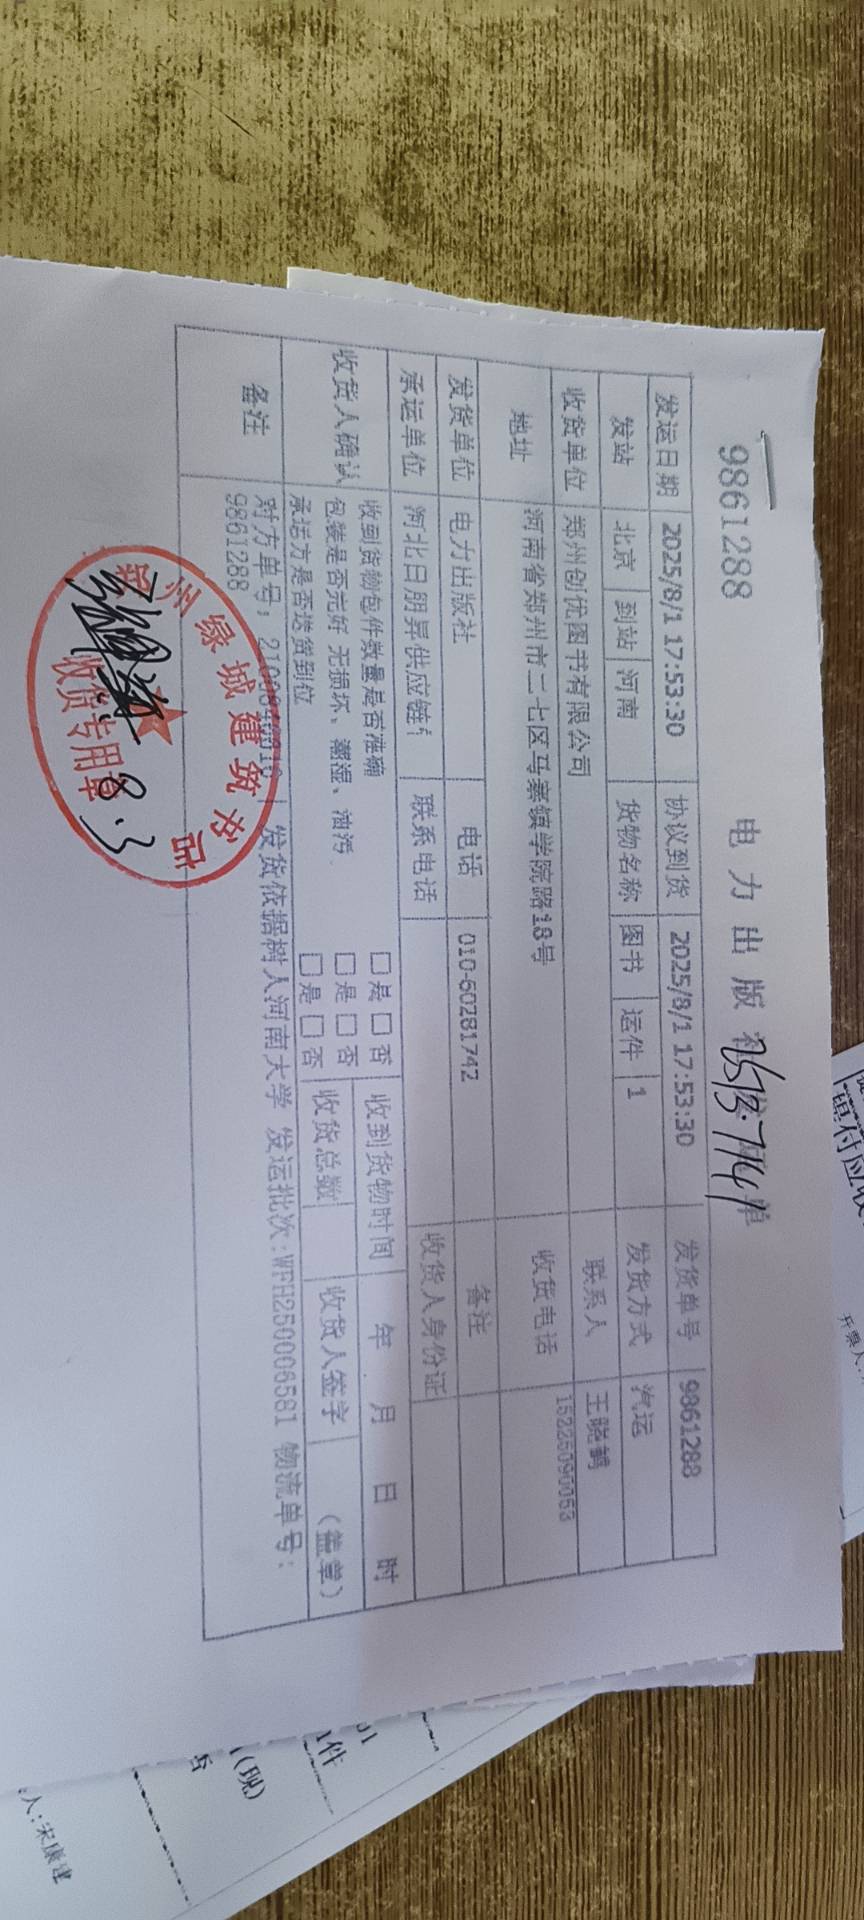 9861288
电力出版社 单
发运日期 2025/8/1 17:53:30 协议到货 2025/8/1 17:53:30 发货单号 9861288
发站 北京 到站 河南 货物名称 图书 运件 1 发货方式 汽运
收货单位 郑州创优图书有限公司 联系人 王晓鹤
地址 河南省郑州市二七区马寨镇学院路18号 收货电话 15225090053
发货单位 电力出版社 电话 010-60281742 备注
承运单位 河北日朋昇供应链 联系电话 收货人身份证
收货人确认 收到货物包件数量是否准确 □是 □否 收到货物时间 年 月 日 时
包装是否完好 无损坏、潮湿、油污 □是 □否 收货总数 收货人签字 (盖章)
承运方是否送货到位 □是 □否
备注 对方单号: 发货依据树人河南大学 发运批次:WFH250006581 物流单号:
9861288
郑州绿城建筑书店
收货专用章
8.3
单付应收
开票人:
1件
(现)
人:宋康建